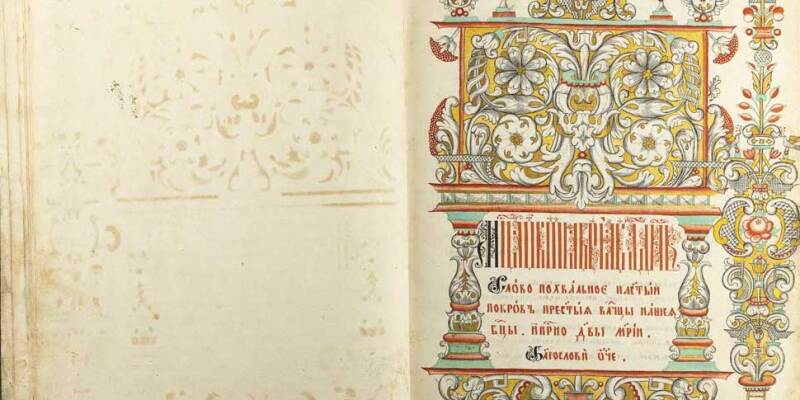 Сло́во похва́льное на ст҃ы́й
покро́въ прест҃ы́ѧ влⷣчцы на́шеѧ
бцⷣы. и҆ при́сно дв҃ы мр҃і́и.
Бл҃гословѝ ѻ҆́ч҃е.